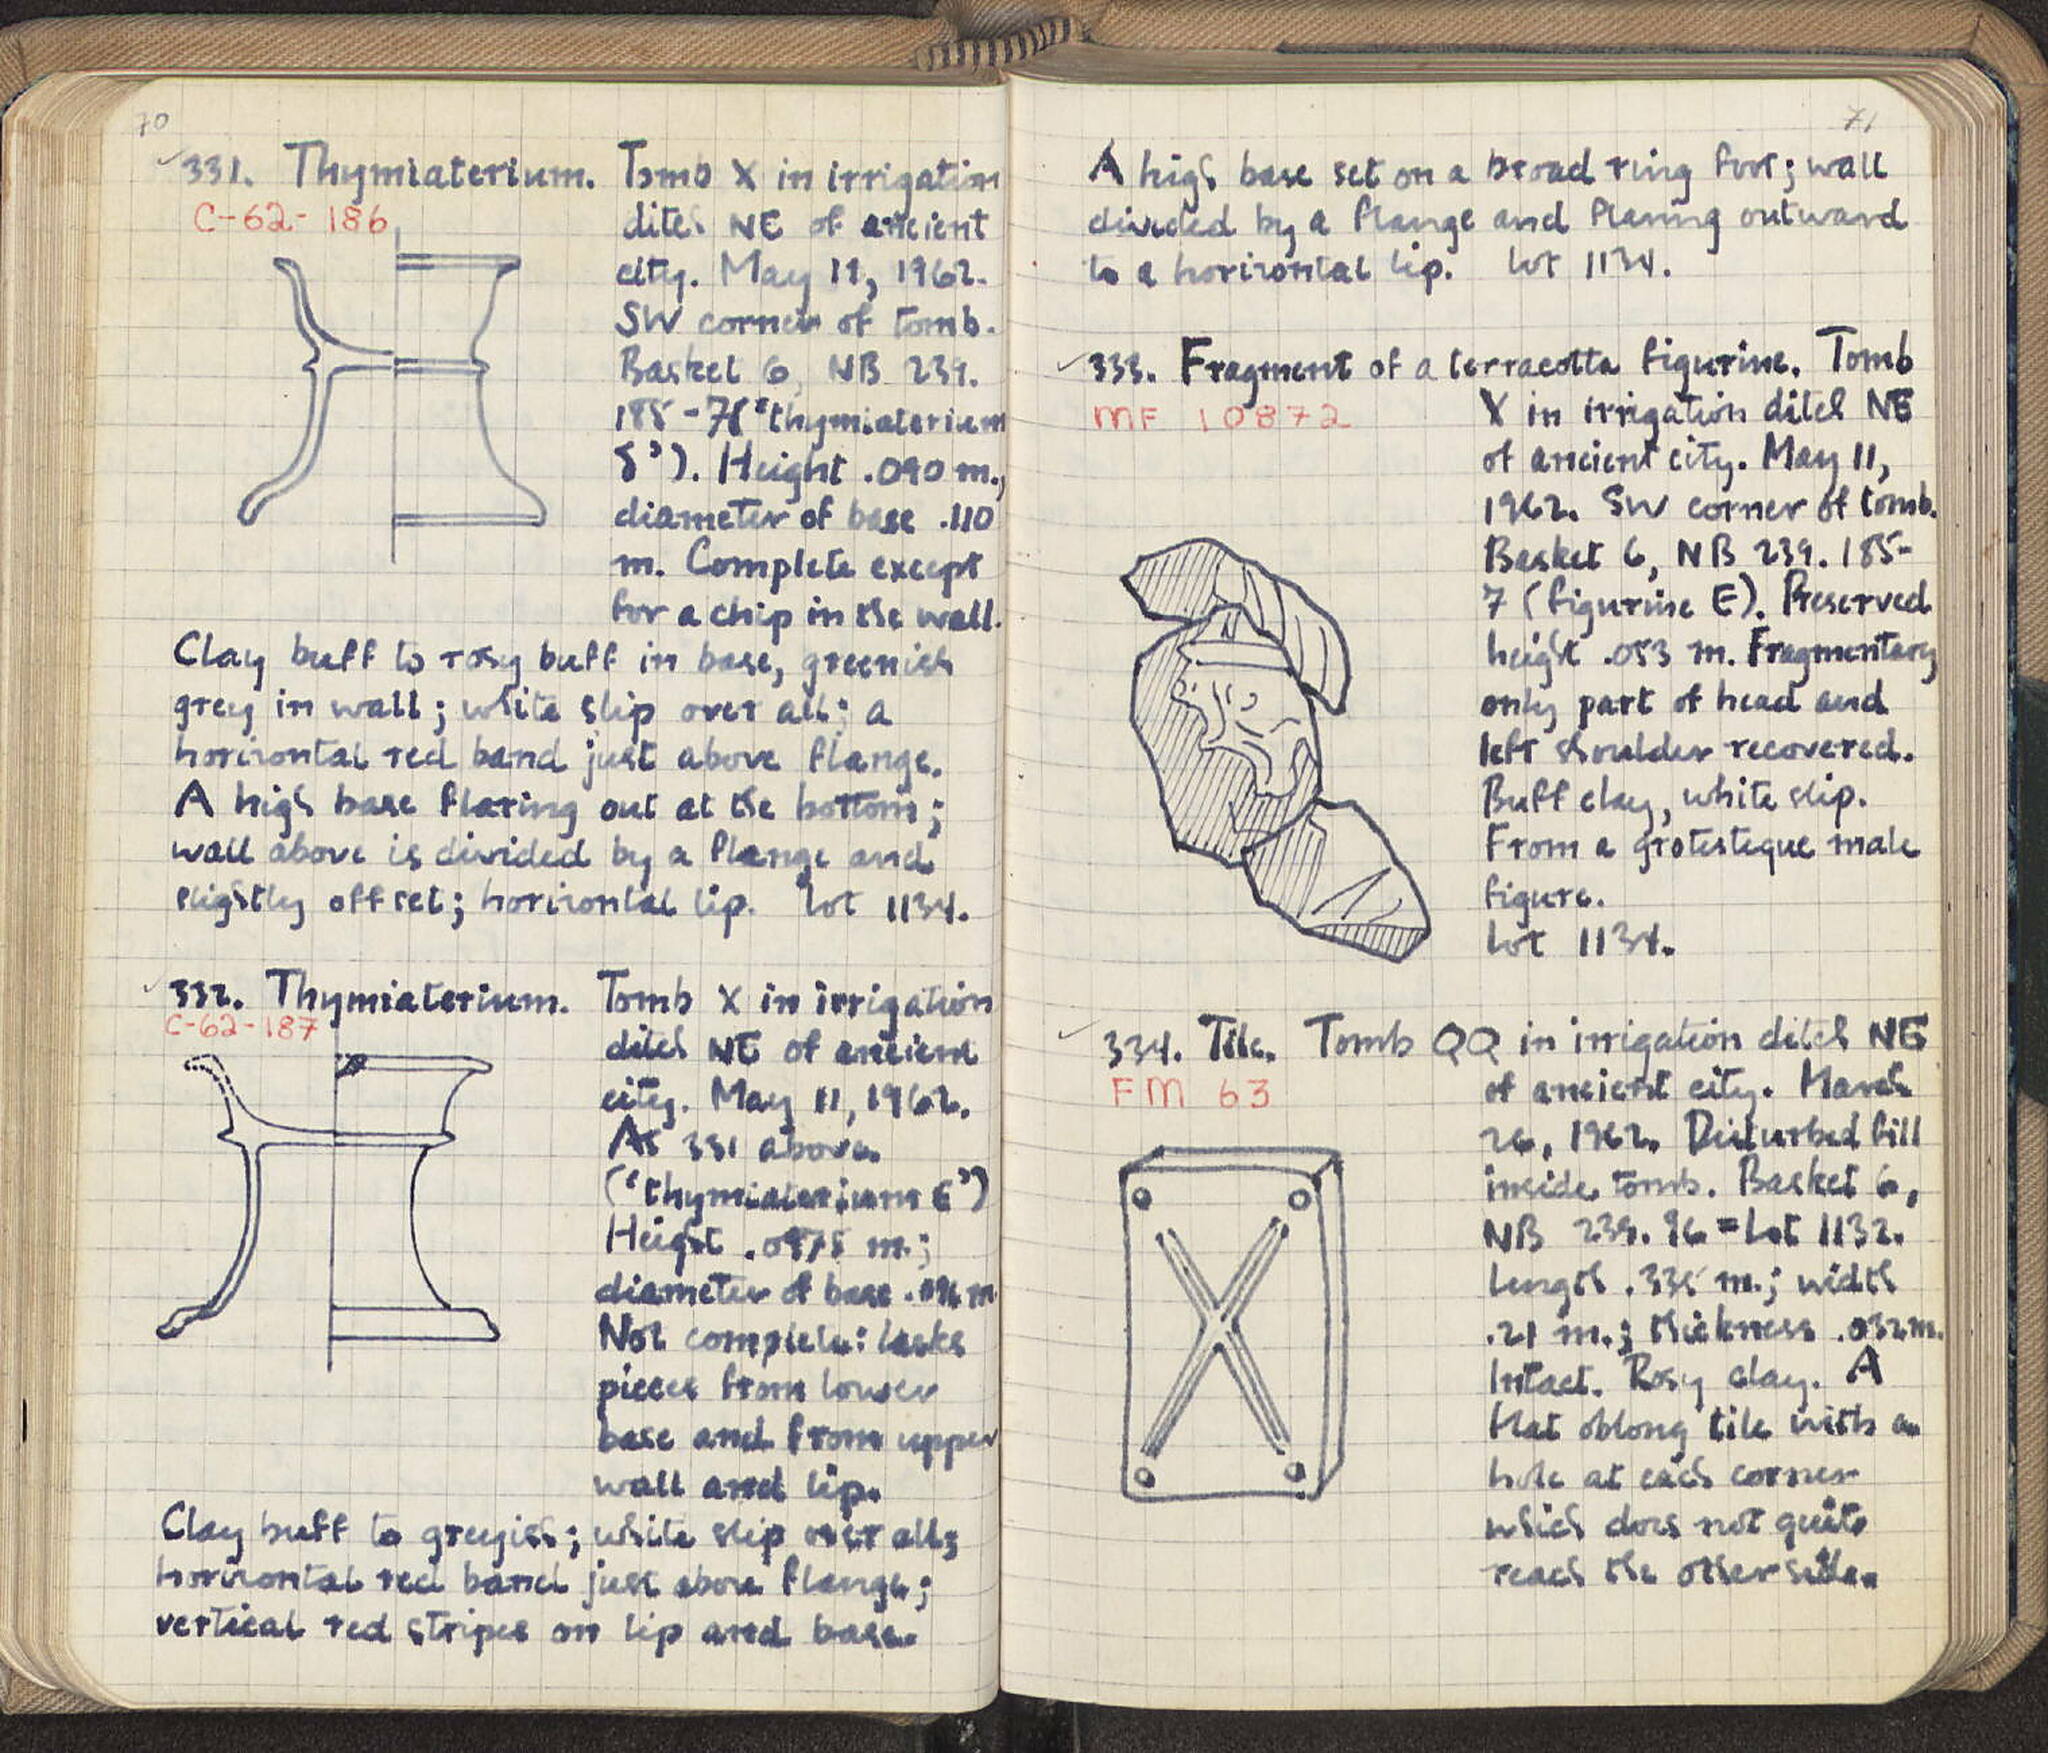 70
331. Thymiaterium. Tomb X in irrigation
C-62-186
ditch NE of ancient
city. May 11, 1962.
SW corner of tomb.
Basket 6, NB 239.
185-7 ("thymiaterium
δ"). Height .090 m.,
diameter of base .110
m. Complete except
for a chip in the wall.
Clay buff to rosy buff in base, greenish
grey in wall; white slip over all; a
horizontal red band just above flange.
A high base flaring out at the bottom;
wall above is divided by a flange and
slightly offset; horizontal lip. Lot 1134.
332. Thymiaterium. Tomb X in irrigation
C-62-187
ditch NE of ancient
city. May 11, 1962.
As 331 above.
("thymiaterium E")
Height .0975 m.;
diameter of base .096 m
Not complete: lacks
pieces from lower
base and from upper
wall and lip.
Clay buff to greyish; white slip over all;
horizontal red band just above flange;
vertical red stripes on lip and base.
71
A high base set on a broad ring foot; wall
divided by a flange and flaring outward
to a horizontal lip. Lot 1134.
333. Fragment of a terracotta figurine. Tomb
MF 10872
X in irrigation ditch NE
of ancient city. May 11,
1962. SW corner of tomb.
Basket 6, NB 239. 185-
7 (figurine E). Preserved
height .053 m. Fragmentary
only part of head and
left shoulder recovered.
Buff clay, white slip.
From a grotesteque male
figure.
Lot 1134.
334. Tile. Tomb QQ in irrigation ditch NE
FM 63
of ancient city. March
26, 1962. Disturbed fill
inside tomb. Basket 6,
NB 239. 96 = Lot 1132.
Length .335 m.; width
.21 m.; thickness .032 m.
Intact. Rosy clay. A
flat oblong tile with a
hole at each corner
which does not quite
reach the other side.